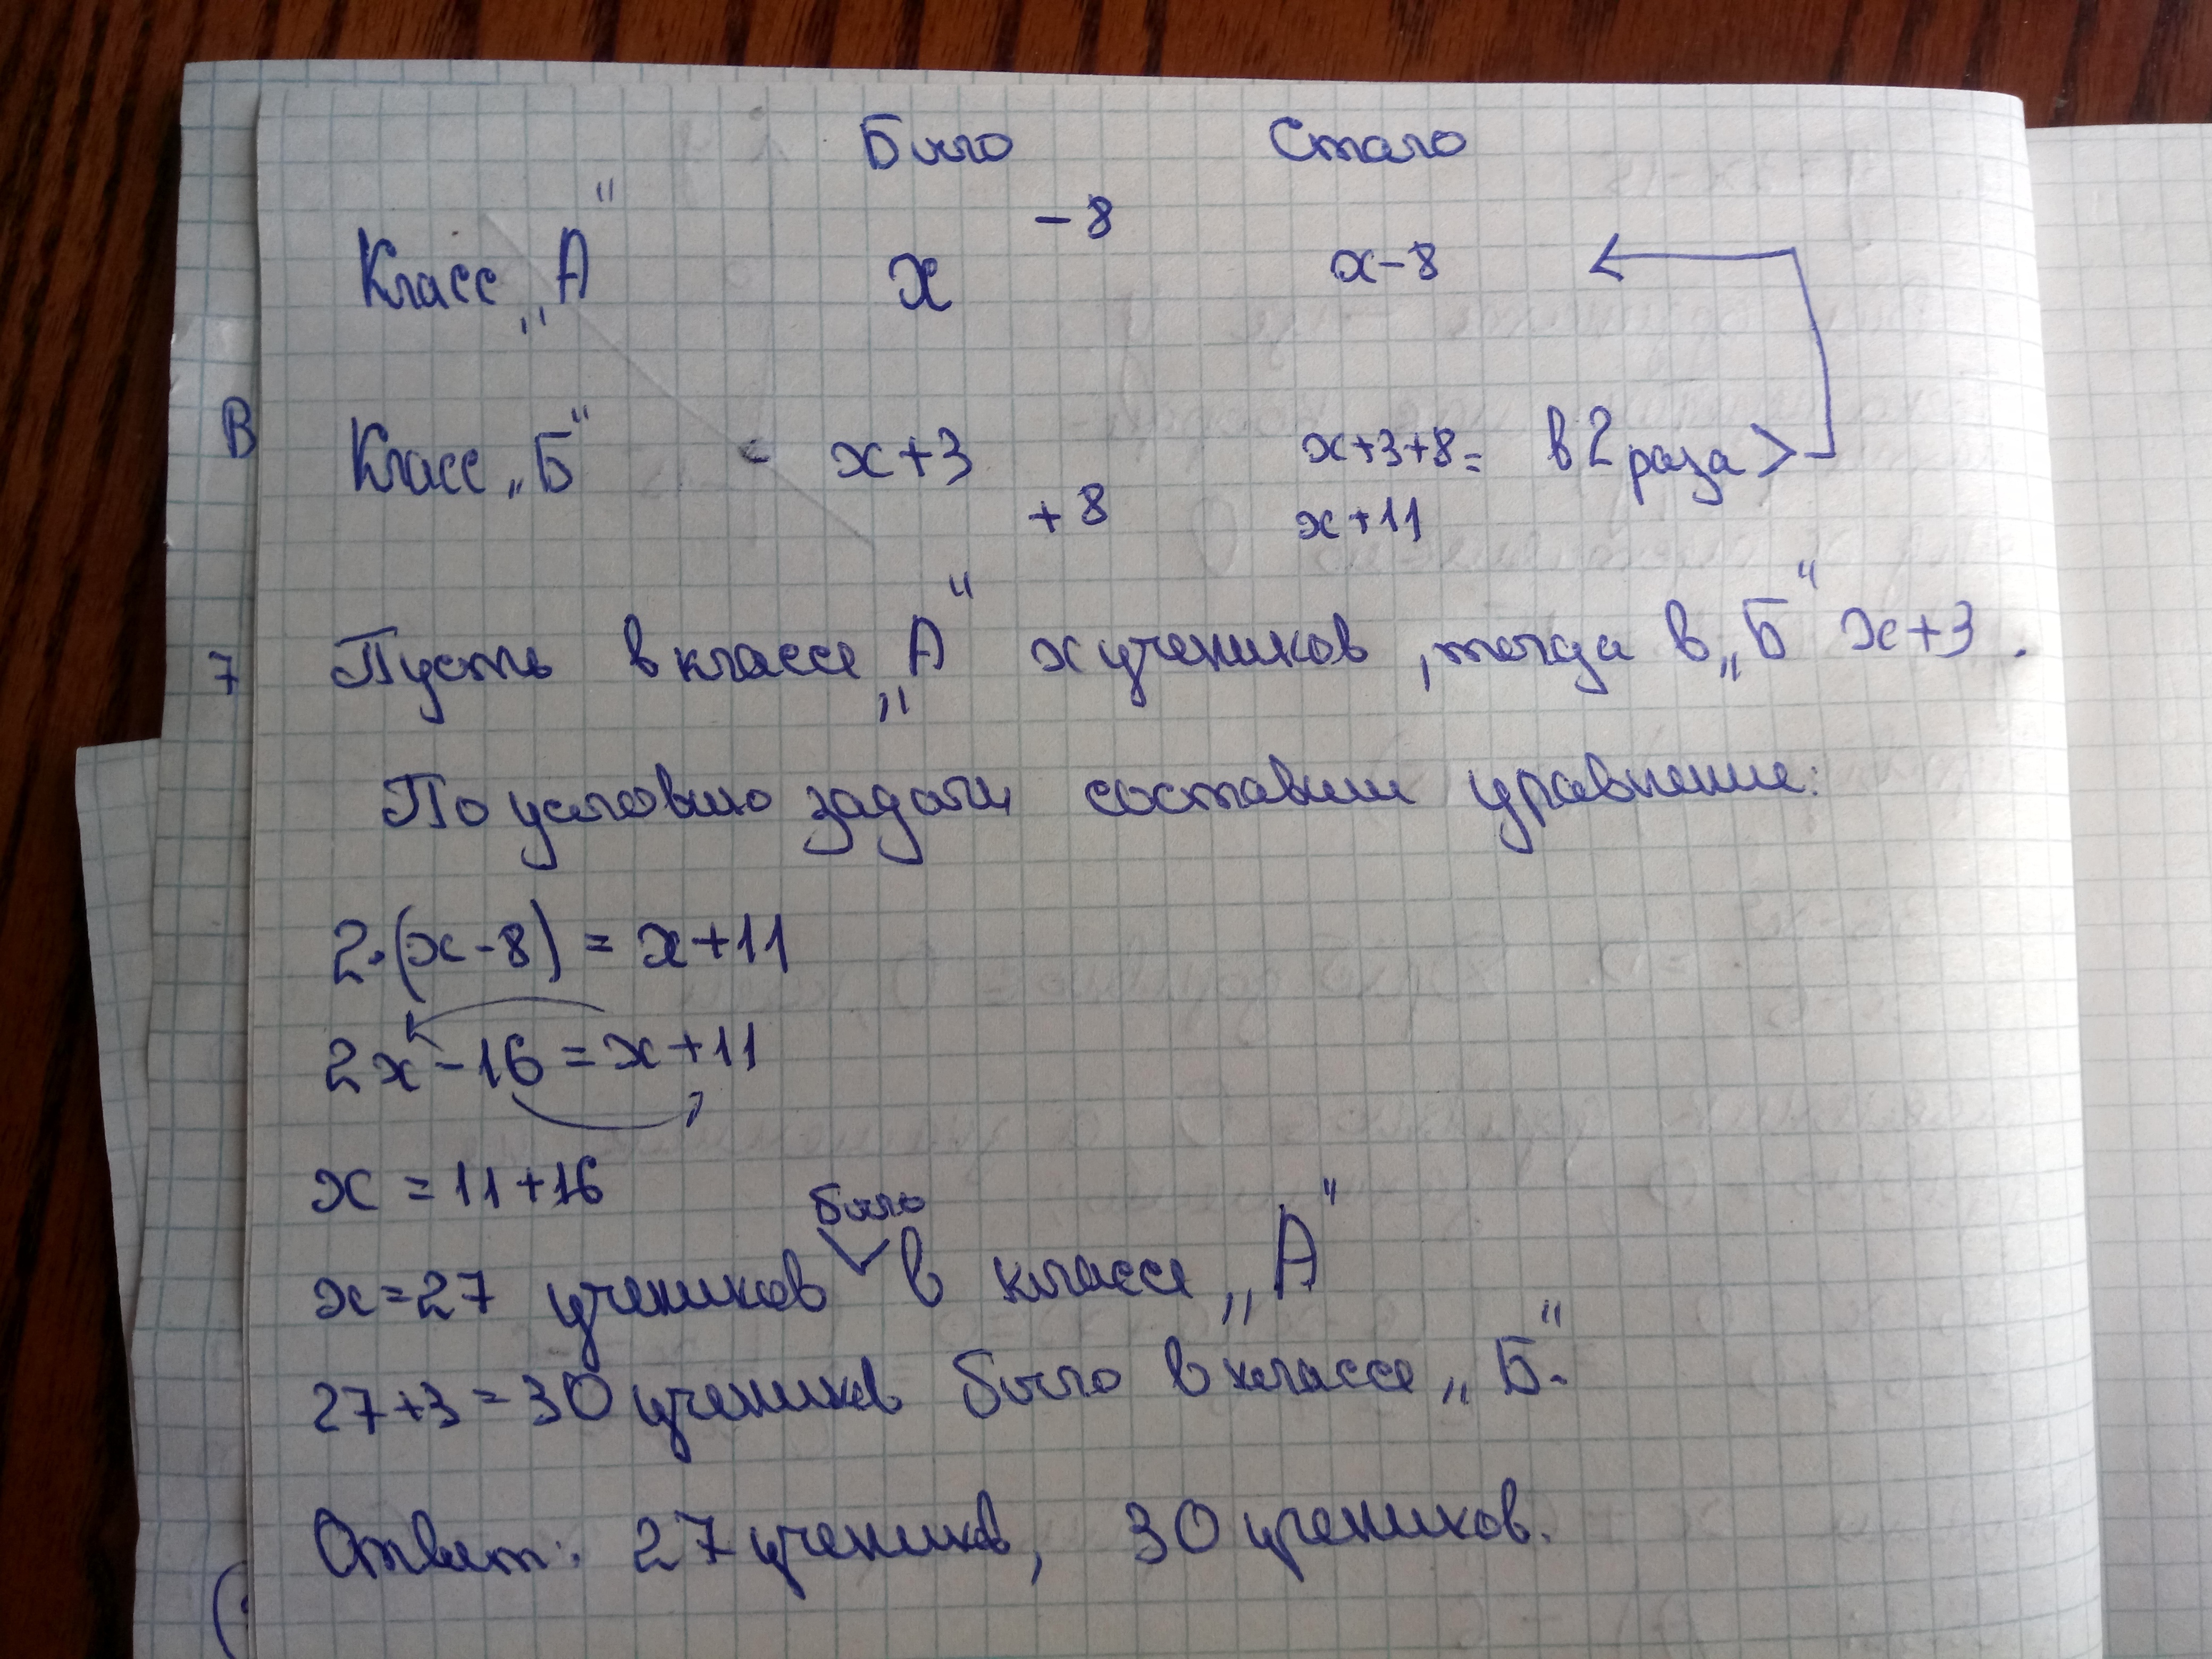 Было Стало
-8
Класс „А" x x-8
В
Класс „Б" - x+3 x+3+8= в 2 раза >
+8 x+11
7
Пусть в классе „А" x учеников, тогда в „Б" x+3.
По условию задачи составим уравнение:
2·(x-8) = x+11
2x-16=x+11
x = 11+16
было
x=27 учеников в классе „А"
27+3=30 учеников было в классе „Б".
Ответ: 27 учеников, 30 учеников.